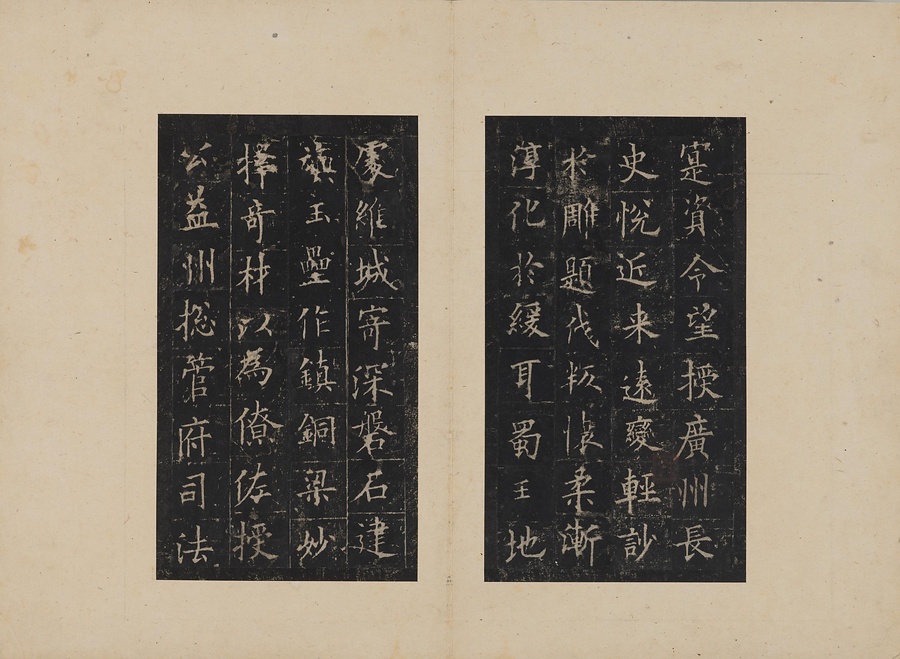 寔資令望授廣州長
史悅近来遠變輕訬
於雕題伐叛懷柔漸
淳化於緩耳蜀王地
處維城寄深磐石建
旟玉壘作鎮銅梁妙
擇奇材以為僚佐授
公益州揔管府司法